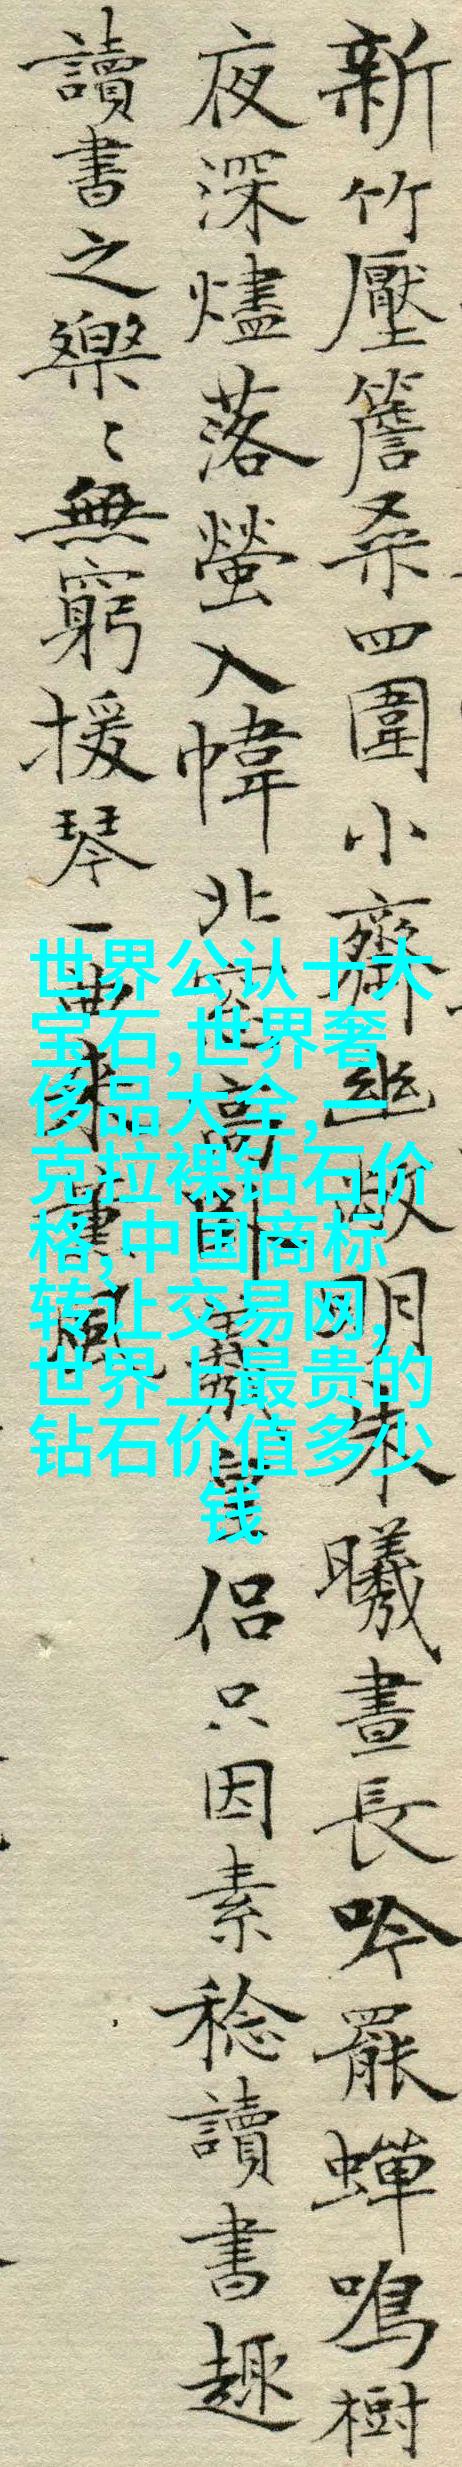 新竹壓簷桑四圍小齋幽敞明朱曦晝長吟罷蟬鳴樹
夜深燼落螢入幃北窗高卧羲皇侶只因素稔讀書趣
讀書之樂〻無窮援琴一曲來薰風
世界公认十大
宝石,世界奢
侈品大全,一
克拉裸钻石价
格,中国商标
转让交易网,
世界上最贵的
钻石价值多少
钱